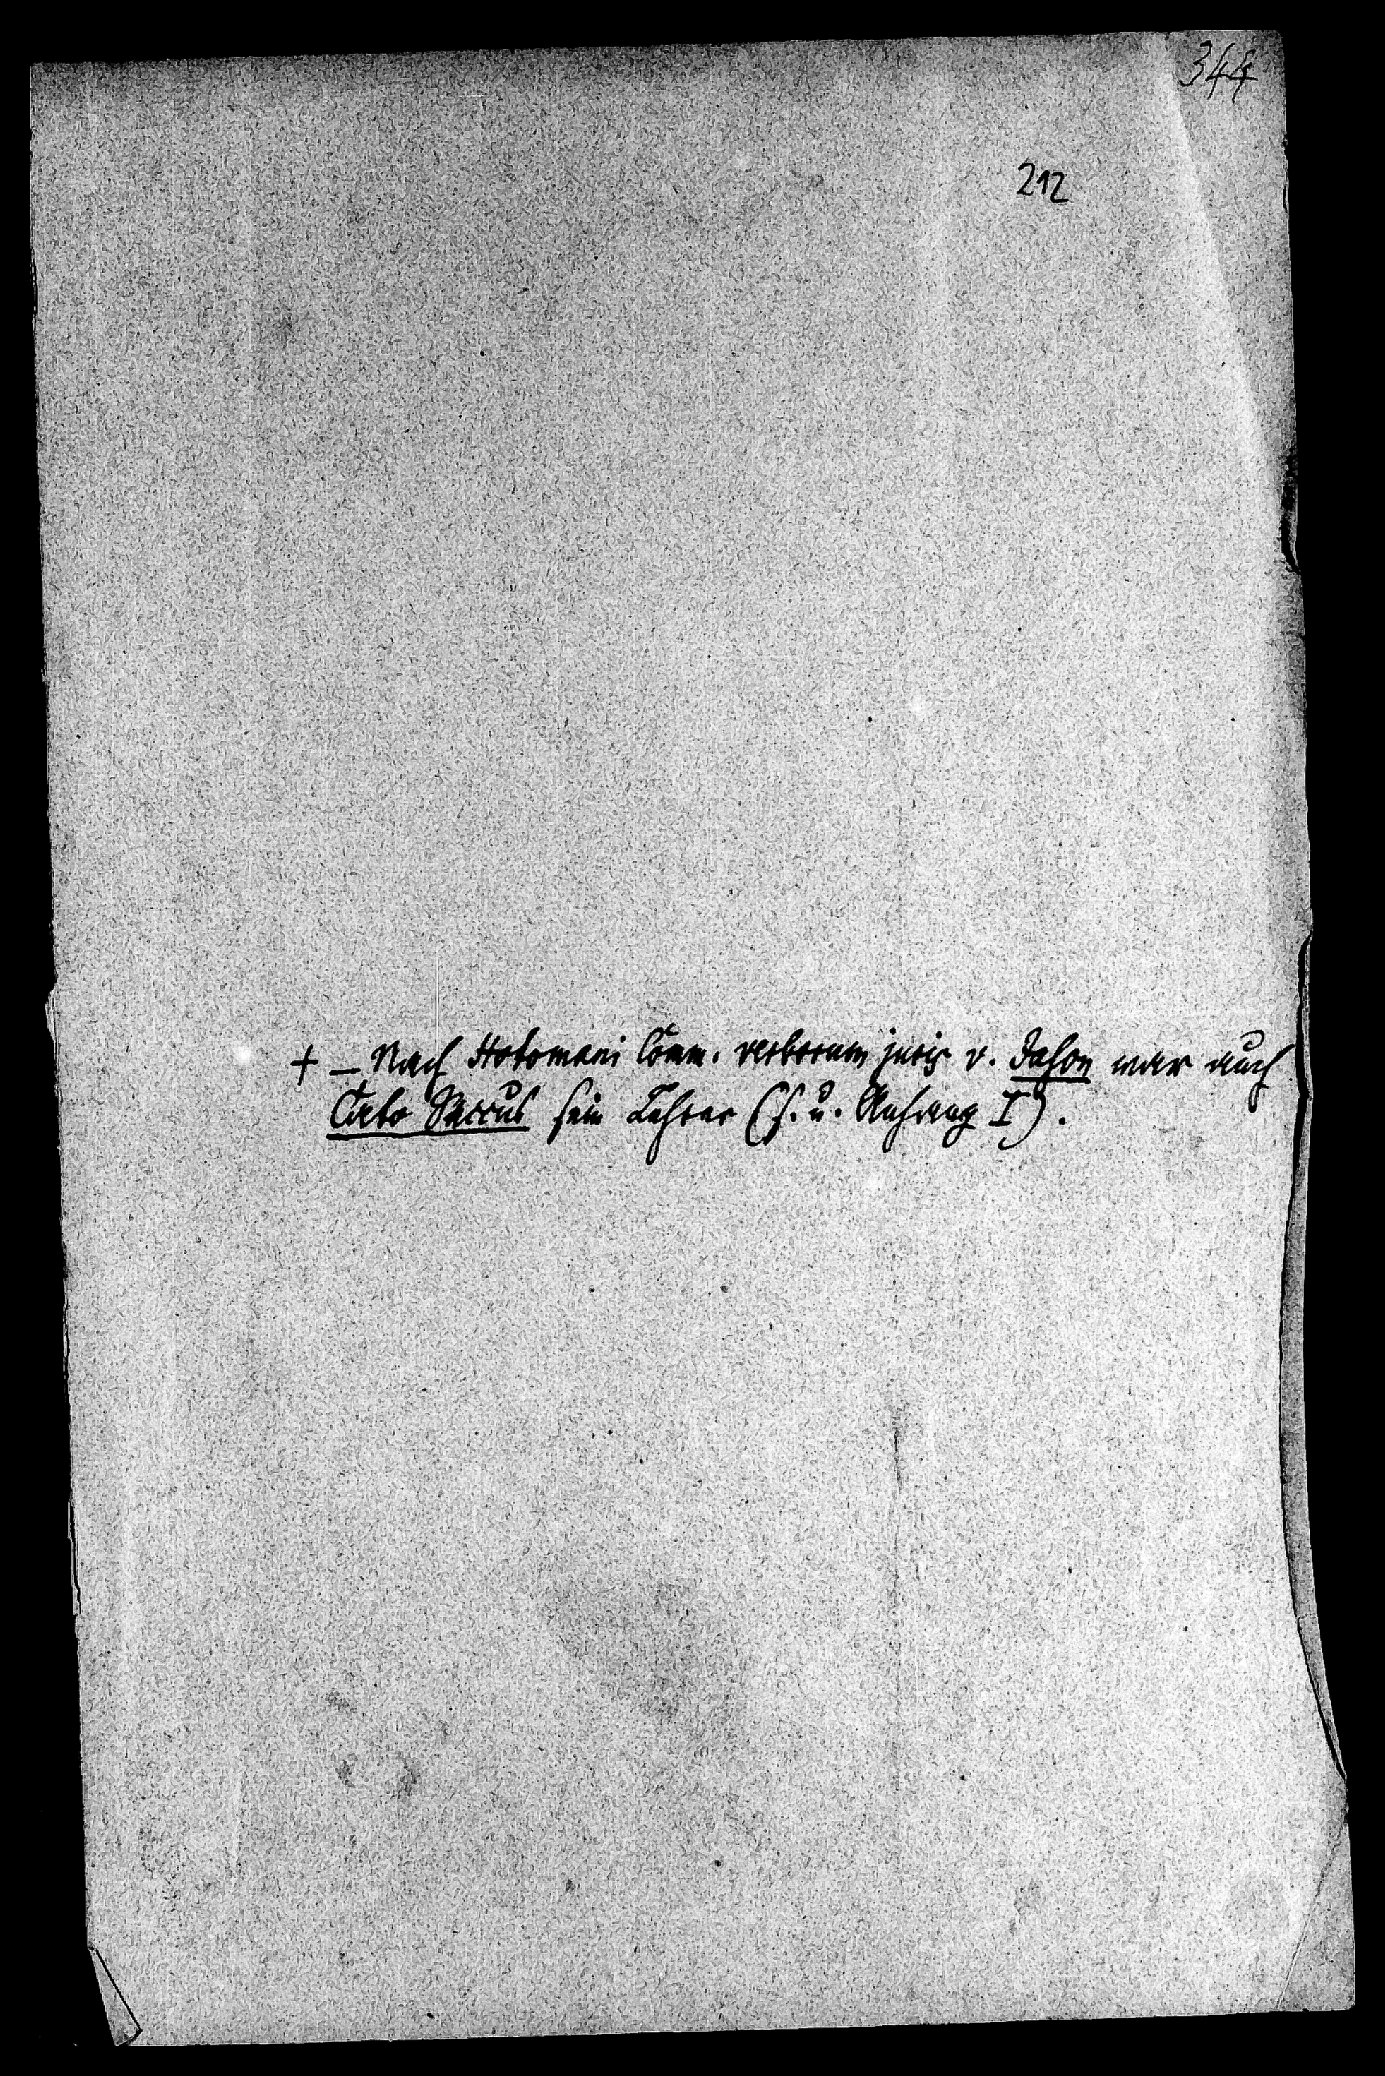 344
212
+ – Nach Hotomani Comm. verborum juris v. Jason war auch
Cato Saccus sein Lehrer (s. u. Anhang I).